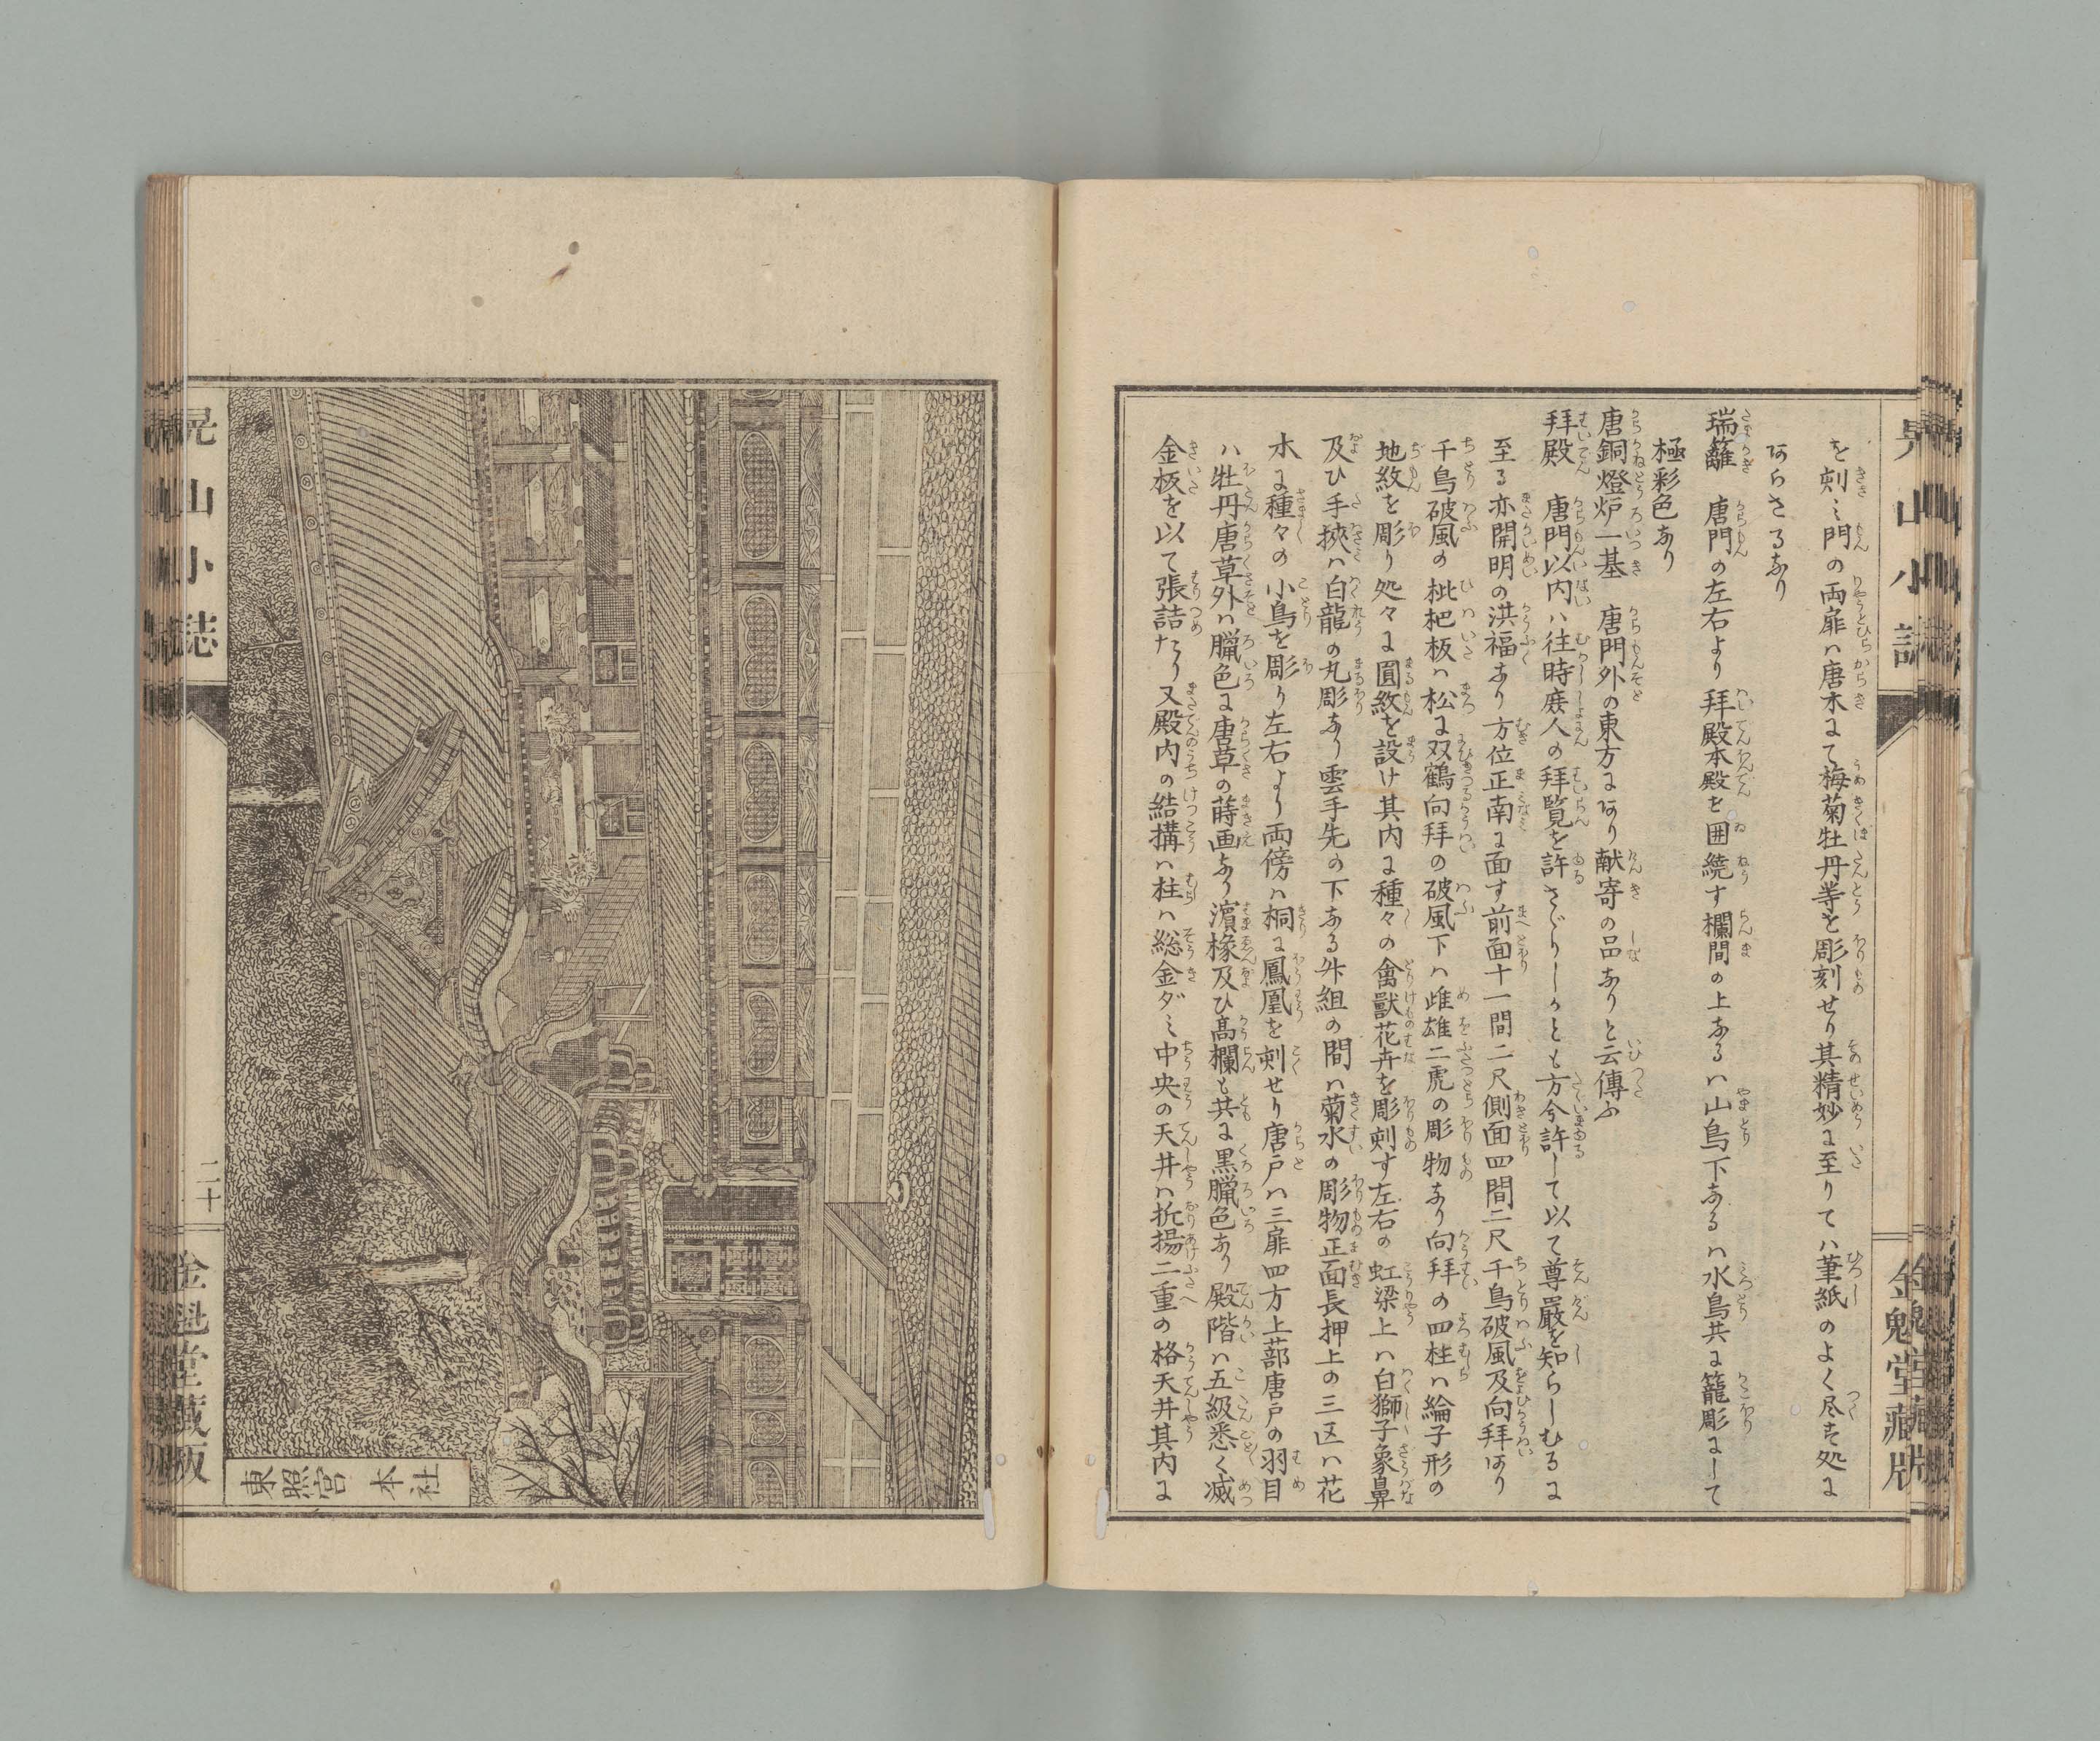 晃山小誌
金魁堂藏版
を刻ミ門の両扉ハ唐木にて梅菊牡丹等を彫刻せり其精妙に至りてハ筆紙のよく尽す処に
あらさるなり
瑞籬　唐門の左右より拜殿本殿を囲繞す欄間の上なるハ山鳥下なるハ水鳥共に籠彫にして
極彩色なり
唐銅燈炉一基　唐門外の東方にあり献寄の品なりと云傳ふ
拜殿　唐門以内ハ往時庶人の拜覧を許さゞりしかとも方今許して以て尊嚴を知らしむるに
至る亦開明の洪福なり方位正南に面す前面十一間二尺側面四間二尺千鳥破風及向拜あり
千鳥破風の枇杷板ハ松に双鶴向拜の破風下ハ雌雄二虎の彫物あり向拜の四柱ハ綸子形の
地紋を彫り処々に圓紋を設け其内に種々の禽獸花卉を彫刻す左右の虹梁上ハ白獅子象鼻
及ひ手挾ハ白龍の丸彫なり雲手先の下なる舛組の間ハ菊水の彫物正面長押上の三区ハ花
木に種々の小鳥を彫り左右より両傍ハ桐に鳳凰を刻せり唐戸ハ三扉四方上蔀唐戸の羽目
ハ牡丹唐草外ハ臘色に唐草の蒔画あり濵椽及ひ高欄も共に黒臘色あり殿階ハ五級悉く滅
金板を以て張詰たり又殿内の結構ハ柱ハ総金ダミ中央の天井ハ折揚二重の格天井其内に
東照宮　本社
晃山小誌
二十
金魁堂藏版